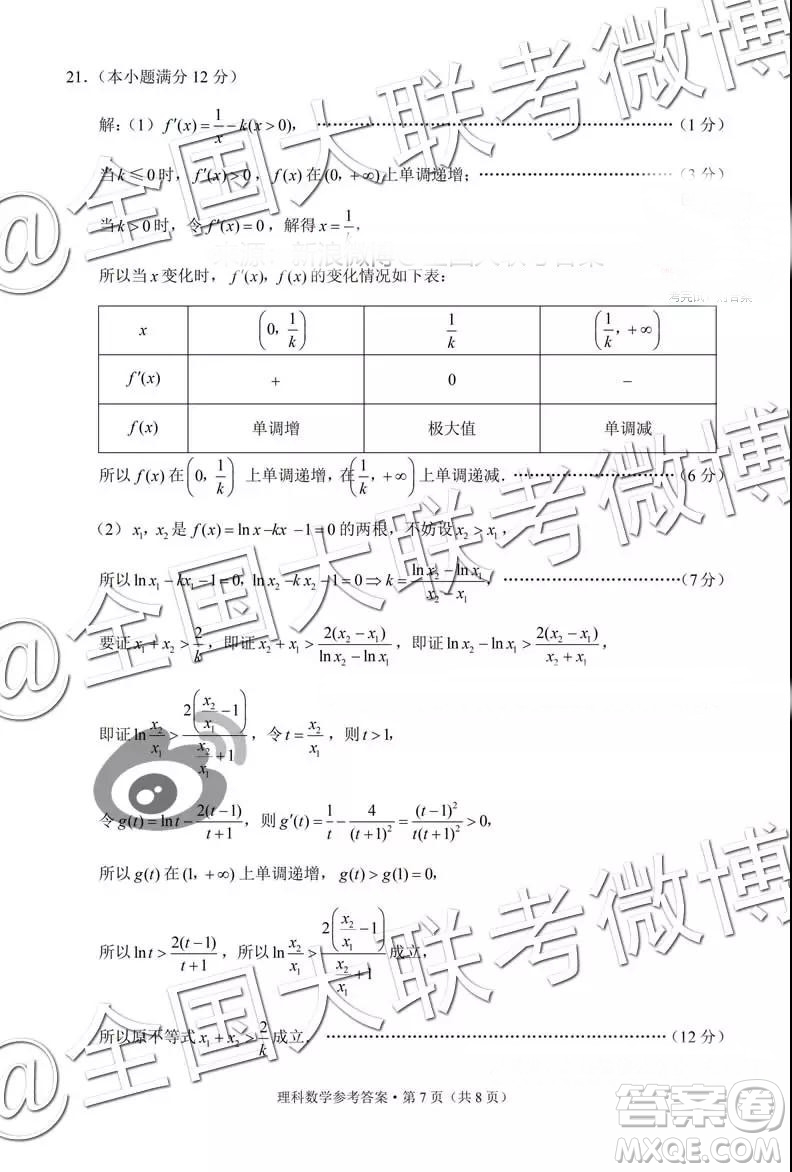 21.（本小题满分 12 分）
解：（1）f′(x)=1/x−k(x>0)， ……………（1 分）
当 k≤0 时，f′(x)>0，f(x) 在 (0，+∞) 上单调递增；……………（3 分）
当 k>0 时，令 f′(x)=0，解得 x=1/k，
所以当 x 变化时，f′(x)，f(x) 的变化情况如下表：
x (0，1/k) 1/k (1/k，+∞)
f′(x) + 0 −
f(x) 单调增 极大值 单调减
所以 f(x) 在 (0，1/k) 上单调递增，在 (1/k，+∞) 上单调递减．……………（6 分）
（2）x₁，x₂ 是 f(x)=ln x−kx −1=0 的两根，不妨设 x₂>x₁，
所以 ln x₁−kx₁−1=0，ln x₂−kx₂−1=0⇒k=(ln x₂−ln x₁)/(x₂−x₁)，……………（7 分）
要证 x₁+x₂>2/k，即证 x₂+x₁>2(x₂−x₁)/(ln x₂−ln x₁)，即证 ln x₂−ln x₁>2(x₂−x₁)/(x₂+x₁)，
即证 ln x₂/x₁>2(x₂/x₁−1)/(x₂/x₁+1)，令 t=x₂/x₁，则 t>1，
令 g(t)=ln t−2(t−1)/(t+1)，则 g′(t)=1/t−4/(t+1)²=(t−1)²/(t(t+1)²)>0，
所以 g(t) 在 (1，+∞) 上单调递增，g(t)>g(1)=0，
所以 ln t>2(t−1)/(t+1)，所以 ln x₂/x₁>2(x₂/x₁−1)/(x₂/x₁+1) 成立，
所以原不等式 x₁+x₂>2/k 成立．……………（12 分）
理科数学参考答案·第 7 页（共 8 页）
@全国大联考微博
@全国大联考微博
@全国大联考微博
答案卷
MXQE.COM